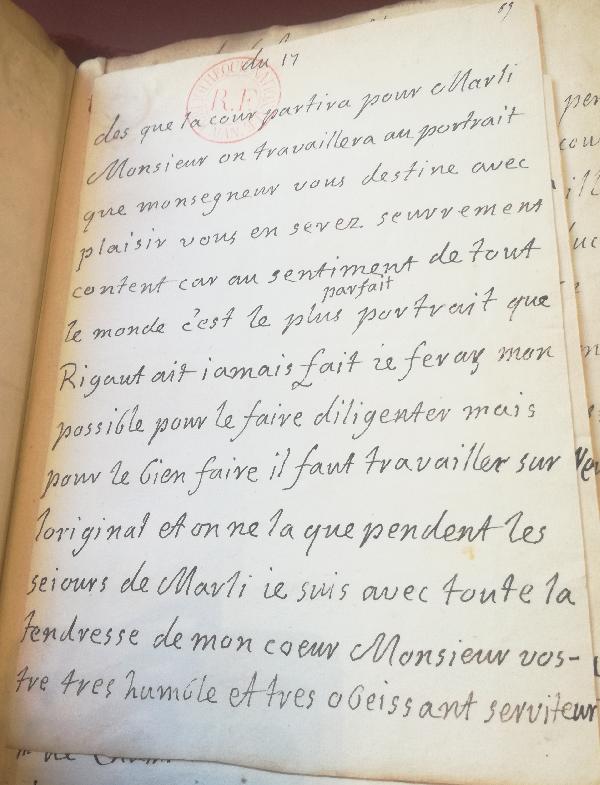 69
du 17
des que la cour partira pour Marli
Monsieur on travaillera au portrait
que monsegneur vous destine avec
plaisir vous en serez seurrement
content car au sentiment de tout
parfait
le monde c'est le plus portrait que
Rigaut ait iamais fait ie feray mon
possible pour le faire diligenter mais
pour le bien faire il faut travailler sur
loriginal et on ne la que pendent les
seiours de Marli ie suis avec toute la
tendresse de mon coeur Monsieur vos-
tre tres humble et tres obeissant serviteur
R.F.